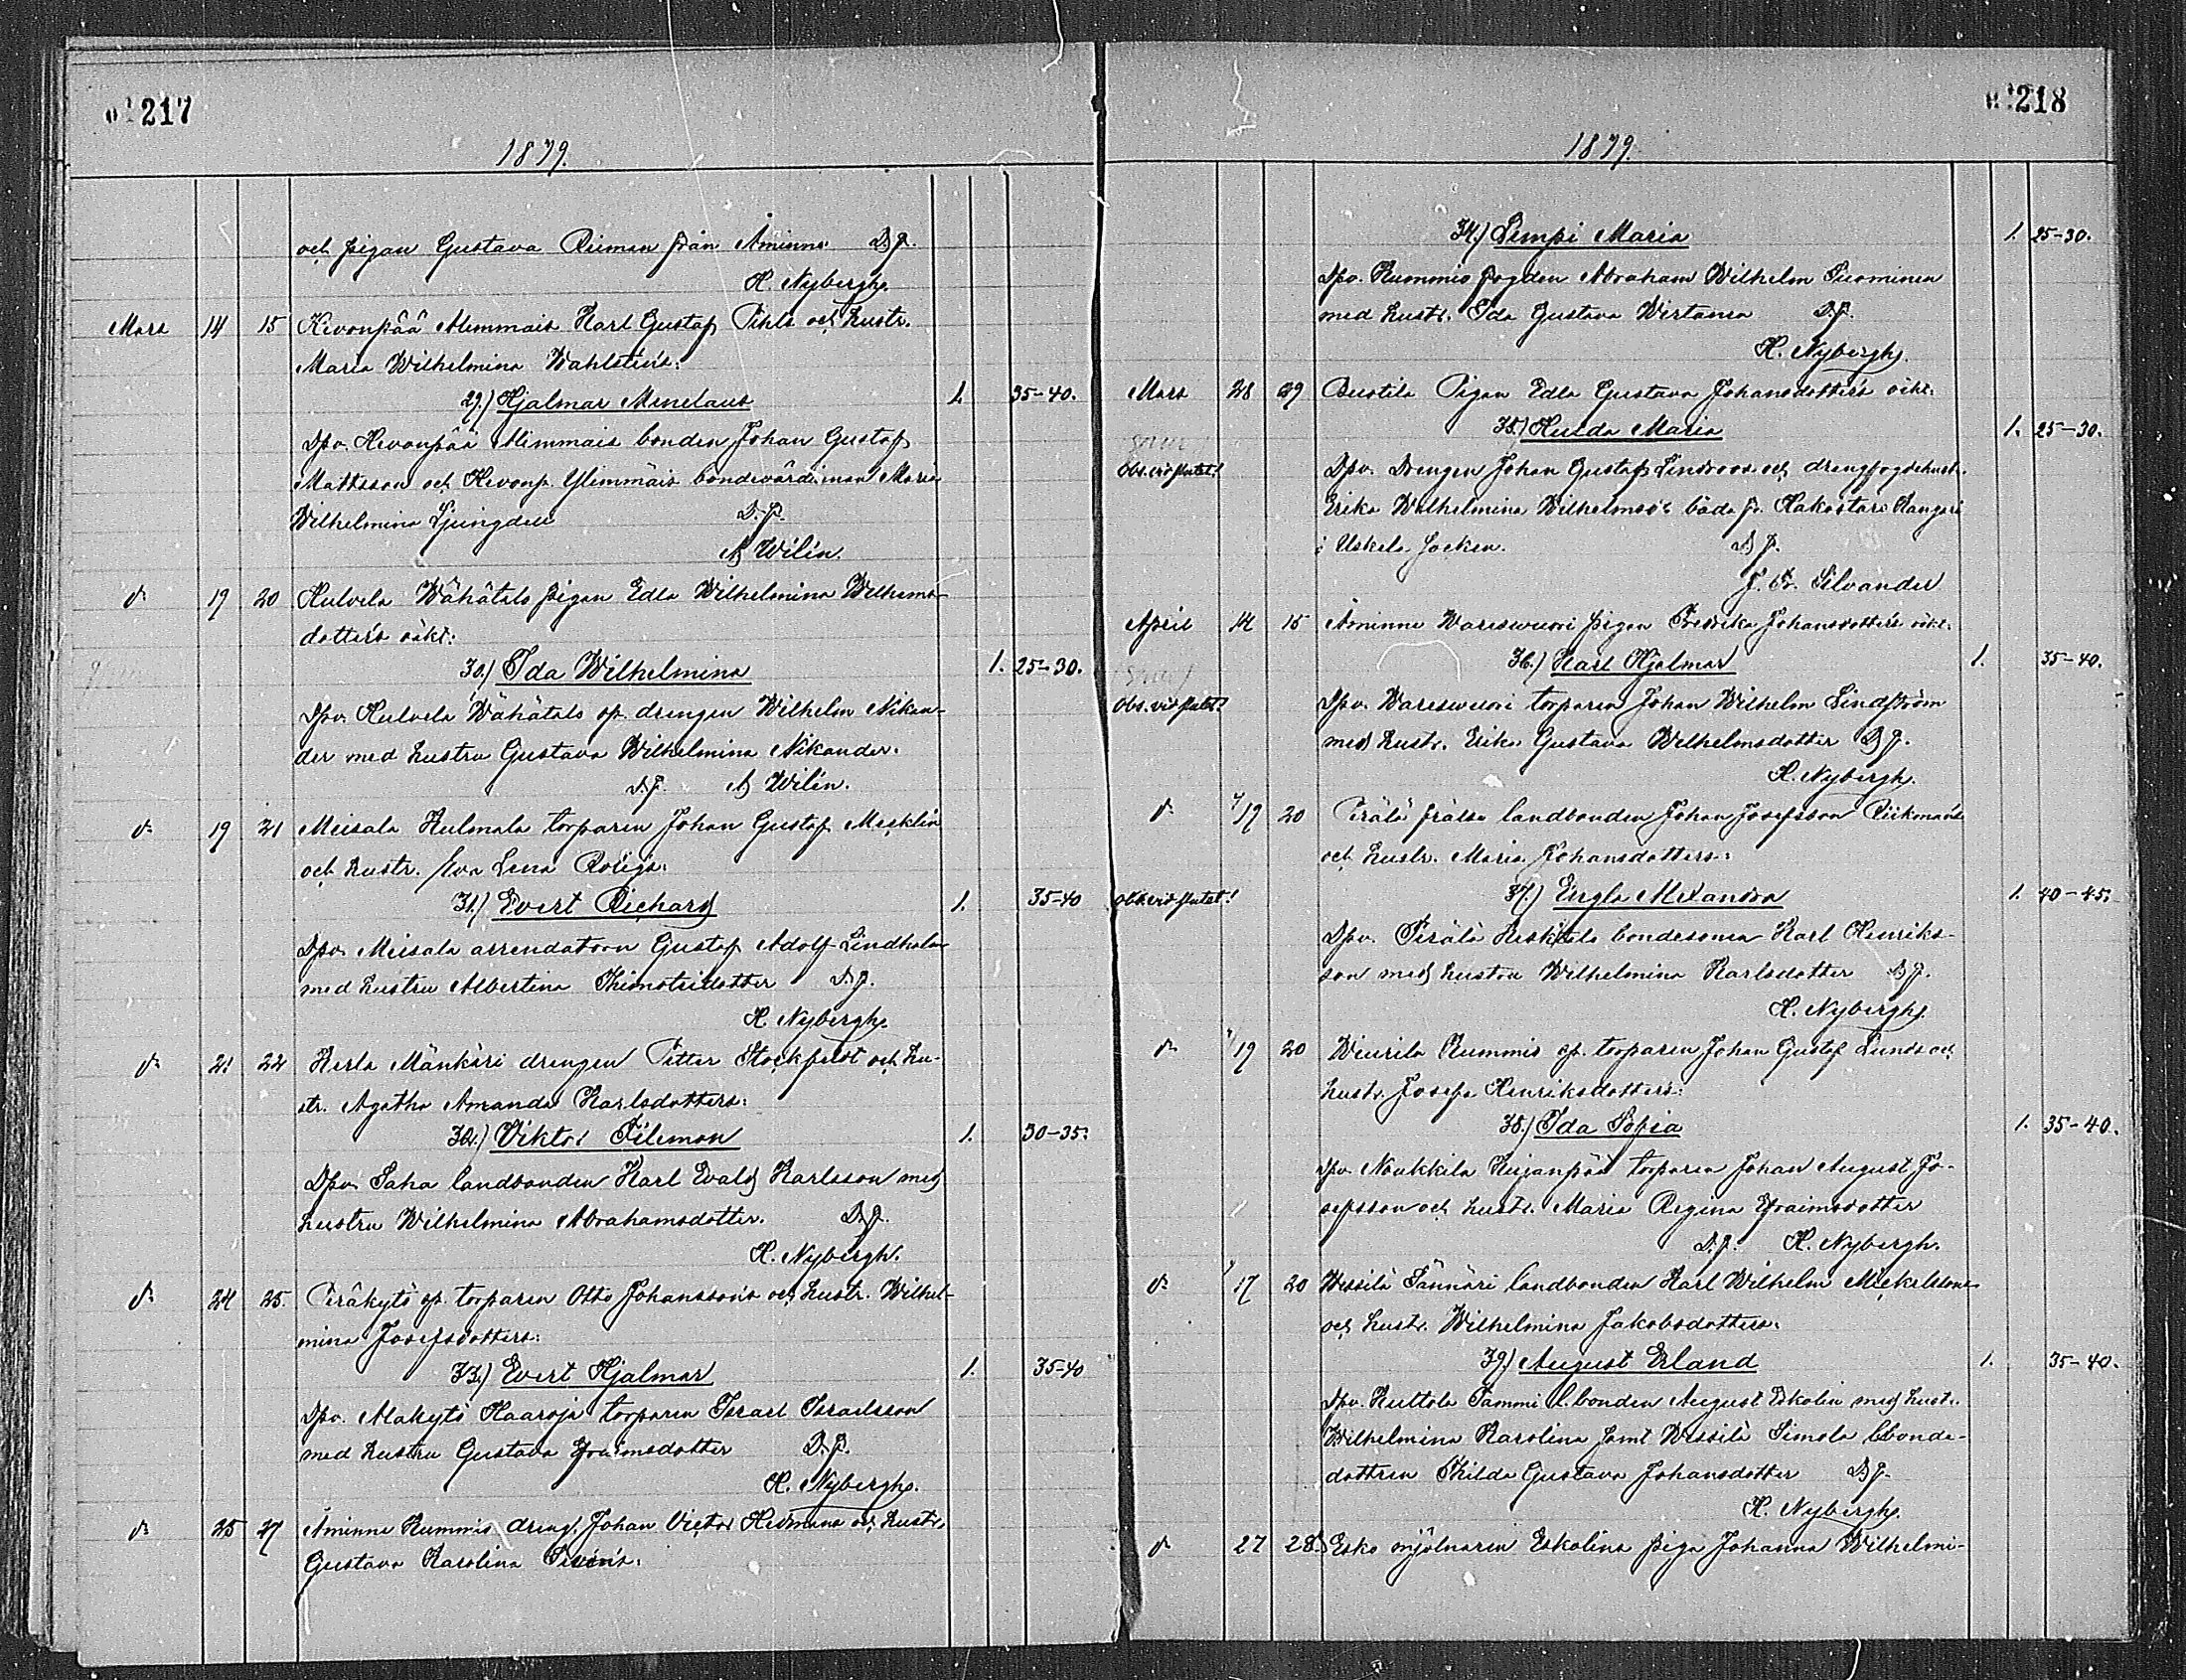 217
1879.
och pigan Gustava Riiman från Åminne D.f.
H. Nybergh.
Mars 14 15 Hevonpää Alimmais Karl Gustaf Pihls och hustr.
Maria Wilhelmina Wahlsténs:
29.) Hjalmar Menelaus 1. 35-40.
Dpv. Hevonpää Alimmais bonden Johan Gustaf
Mattsson och Hevonp. Ylimmäis bondevärdinnan Maria
Wilhelmina Ljungdell D.f.
A Wilén.
d:o 19 20 Hulvela Wähätalo pigan Edla Wilhelmina Wilhelms-
dotters oäkt:
30.) Ida Wilhelmina 1. 25-30.
Dpv. Hulvela Wähätalo sp. drengen Wilhelm Nikan-
der med hustru Gustava Wilhelmina Nikander.
D.f. A Wilén.
d:o 19 21 Meisala Kulmala torparen Johan Gustaf Mesklin
och hustr. Eva Lena
31.) Evert Richard 1. 35-40
Dpv. Meisala arrendatorn Gustaf Adolf Lindholm
med hustru Albertina Thimoteidotter D.f.
H. Nybergh.
d:o 21 22 Kerla Mänkäri drengen Petter Stockfelt och hu-
str. Agatha Amanda Karlsdotters:
32.) Viktor Filemon 1. 30-35.
Dpv. Saha landbonden Karl Evald Karlsson med
hustru Wilhelmina Abrahamsdotter. D.f.
H. Nybergh.
d:o 24 25. Peräkytö sp. torparen Otto Johanssons och hustr. Wilhel-
mina Josefsdotters:
33.) Evert Hjalmar 1. 35-40
Dpv. Alakytö Haaroja torparen Israel Israelsson
med hustru Gustava Efraimsdotter D.f.
H. Nybergh.
d:o 25 27 Åminne Rummis dreng. Johan Victor Hedmans och hustr.
Gustava Karolina
218
1879.
34.) Lempi Maria 1. 25-30.
Dpv. Rummis fogden Abraham Wilhelm Tuominen
med hustr. Ida Gustava Wirtanen D.f.
H. Nybergh.
Mars 28 29 Bustila Pigan Edla Gustava Johansdotters oäkt.
35.) Hulda Maria 1. 25-30.
Obs. vid slutet! Dpv. Drengen Johan Gustaf Lindroos och drengfogdehust.
Erika Wilhelmina båda fr. Hakostaro Kangari
i Uskela socken. D.f.
F. Fr. Silvander
April 14 15 Åminne Waresvuori pigan Fredrika Johansdotters oäkt.
36.) Karl Hjalmar 1. 35-40.
Obs. vid slutet! Dpv. Waresvuori torparen Johan Wilhelm Lindström
med hustr. Erika Gustava Wilhelmsdotter D.f.
H. Nybergh.
d:o 19 20 Perälä frälse landbonden Johan Josefsson Riikmans
och hustr. Maria Johansdotters:
Obs. vid slutet! 37.) Engla Alexandra 1. 40-45.
Dpv. Perälä Keskitalo bondesonen Karl Henriks-
son med hustru Wilhelmina Karlsdotter D.f.
H. Nybergh.
d:o 19 20 Wiurila Rummis sp. torparen Johan Gustaf Lunds och
hustr. Josefa Henriksdotters:
38.) Ida Sofia 1. 35-40.
Dpv. Noukkila Kujanpää torparen Johan August Jo-
sefsson och hustr. Maria Regina Efraimsdotter
D.f. H. Nybergh.
d:o 17 20 Wessilä Sännäri landbonden Karl Wilhelm Mickelssons
och hustr. Wilhelmina Jakobsdotters:
39.) August Erland 1. 35-40.
Dpv. Kuttola Tammi l.bonden August Eskolin med hust.
Wilhelmina Karolina samt Wessilä Simola lbonde-
dottren Thilda Gustava Johansdotter D.f.
H. Nybergh.
d:o 27 28. Esko mjölnaren Eskolins piga Johanna Wilhelmi-